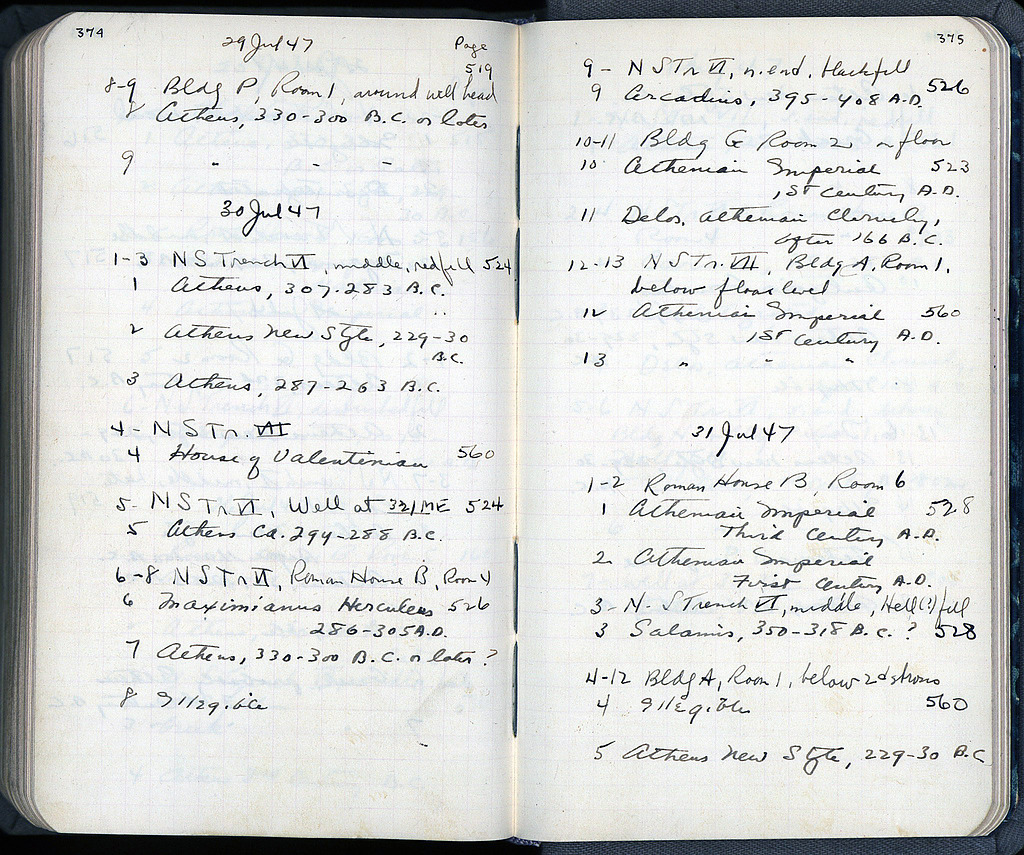 374
29 Jul 47
Page
519
8-9 Bldg P, Room 1, around well head
8 Athens, 330-300 B.C. or later
9 " " "
30 Jul 47
1-3 NS Trench VI, middle, red fill 524
1 Athens, 307-283 B.C.
2 Athens New Style, 229-30
B.C.
3 Athens, 287-263 B.C.
4- N S Tr. VII
4 House of Valentinian 560
5- N S Tr VI, Well at 321/ME 524
5 Athens Ca. 294-288 B.C.
6-8 N S Tr VI, Roman House B, Room 4
6 Maximianus Herculeus 526
286-305 A.D.
7 Athens, 330-300 B.C. or later?
8 Illegible
375
9- N S Tr VI, n. end, blackfill
9 Arcadius, 395-408 A.D. 526
10-11 Bldg G Room 2 on floor
10 Athenian Imperial 523
1st Century A.D.
11 Delos, Athenian Cleruchy,
after 166 B.C.
12-13 N S Tr. VII, Bldg A, Room 1,
below floor level
12 Athenian Imperial 560
1st Century A.D.
13 " "
31 Jul 47
1-2 Roman House B, Room 6
1 Athenian Imperial 528
Third Century A.D.
2 Athenian Imperial
First Century A.D.
3- N-S Trench VI, middle, Hell(?) fill
3 Salamis, 350-318 B.C.? 528
4-12 Bldg A, Room 1, below 2d stros
4 Illegible 560
5 Athens New Style, 229-30 B.C